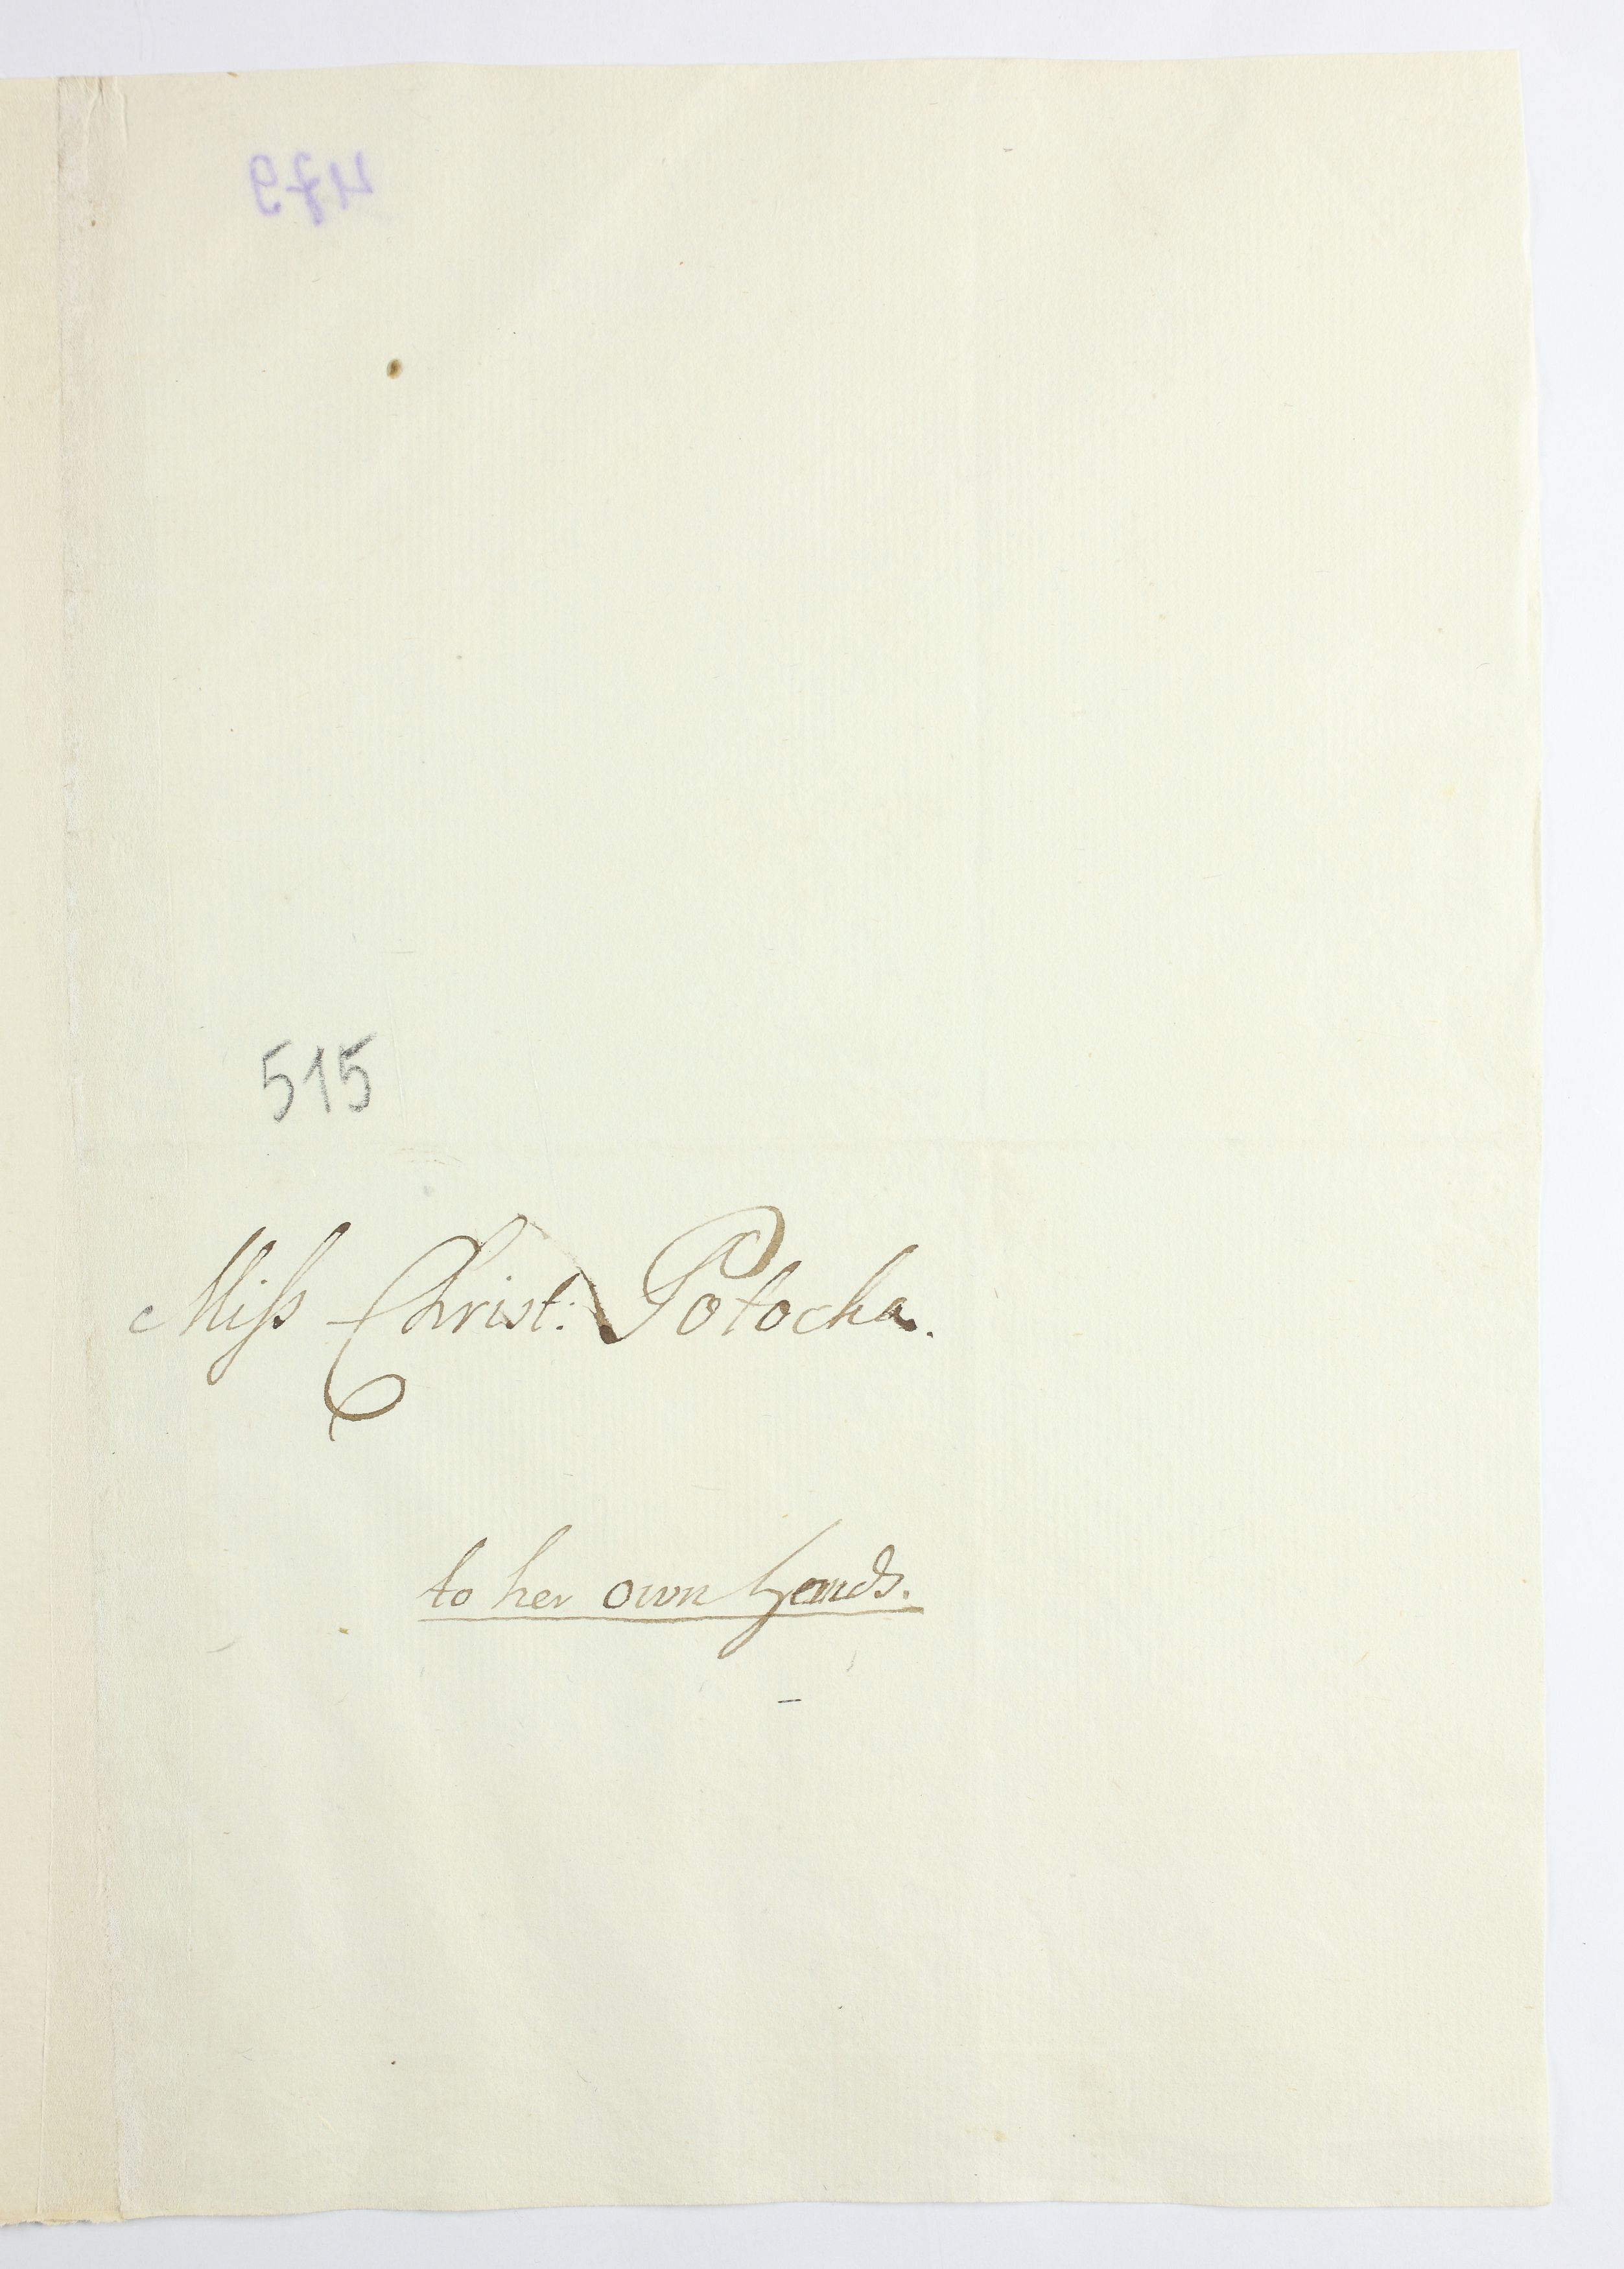 479
515
Miss Christ: Potocka.
to her own hands.